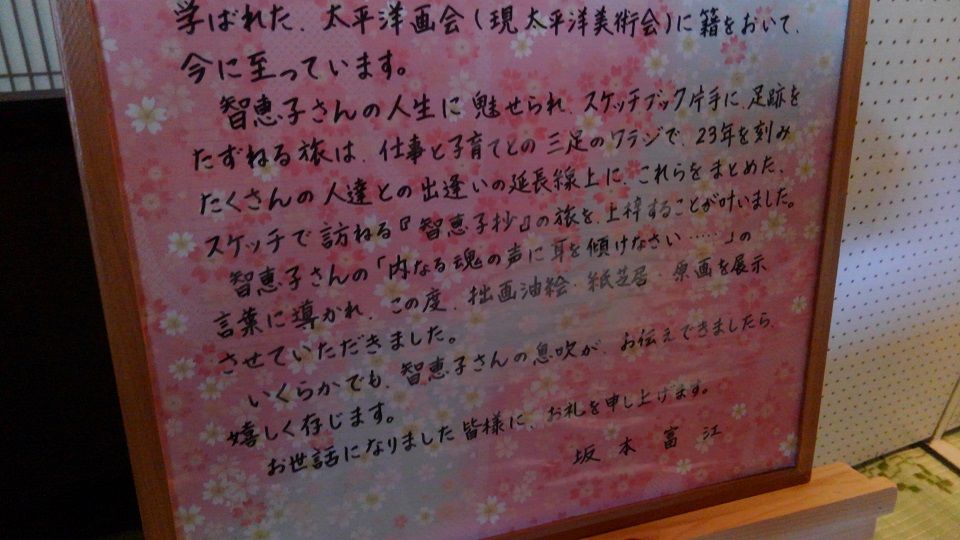 学ばれた、太平洋画会(現太平洋美術会)に籍をおいて、
今に至っています。
智恵子さんの人生に魅せられ、スケッチブック片手に、足跡を
たずねる旅は、仕事と子育てとの三足のワラジで、23年を刻み
たくさんの人達との出逢いの延長線上に、これらをまとめた、
スケッチで訪ねる『智恵子抄』の旅を、上梓することが叶いました。
智恵子さんの「内なる魂の声に耳を傾けなさい……」の
言葉に導かれ、この度、拙画油絵・紙芝居 原画を展示
させていただきました。
いくらかでも、智恵子さんの息吹が、お伝えできましたら、
嬉しく存じます。
お世話になりました皆様に、お礼を申し上げます。
坂本富江